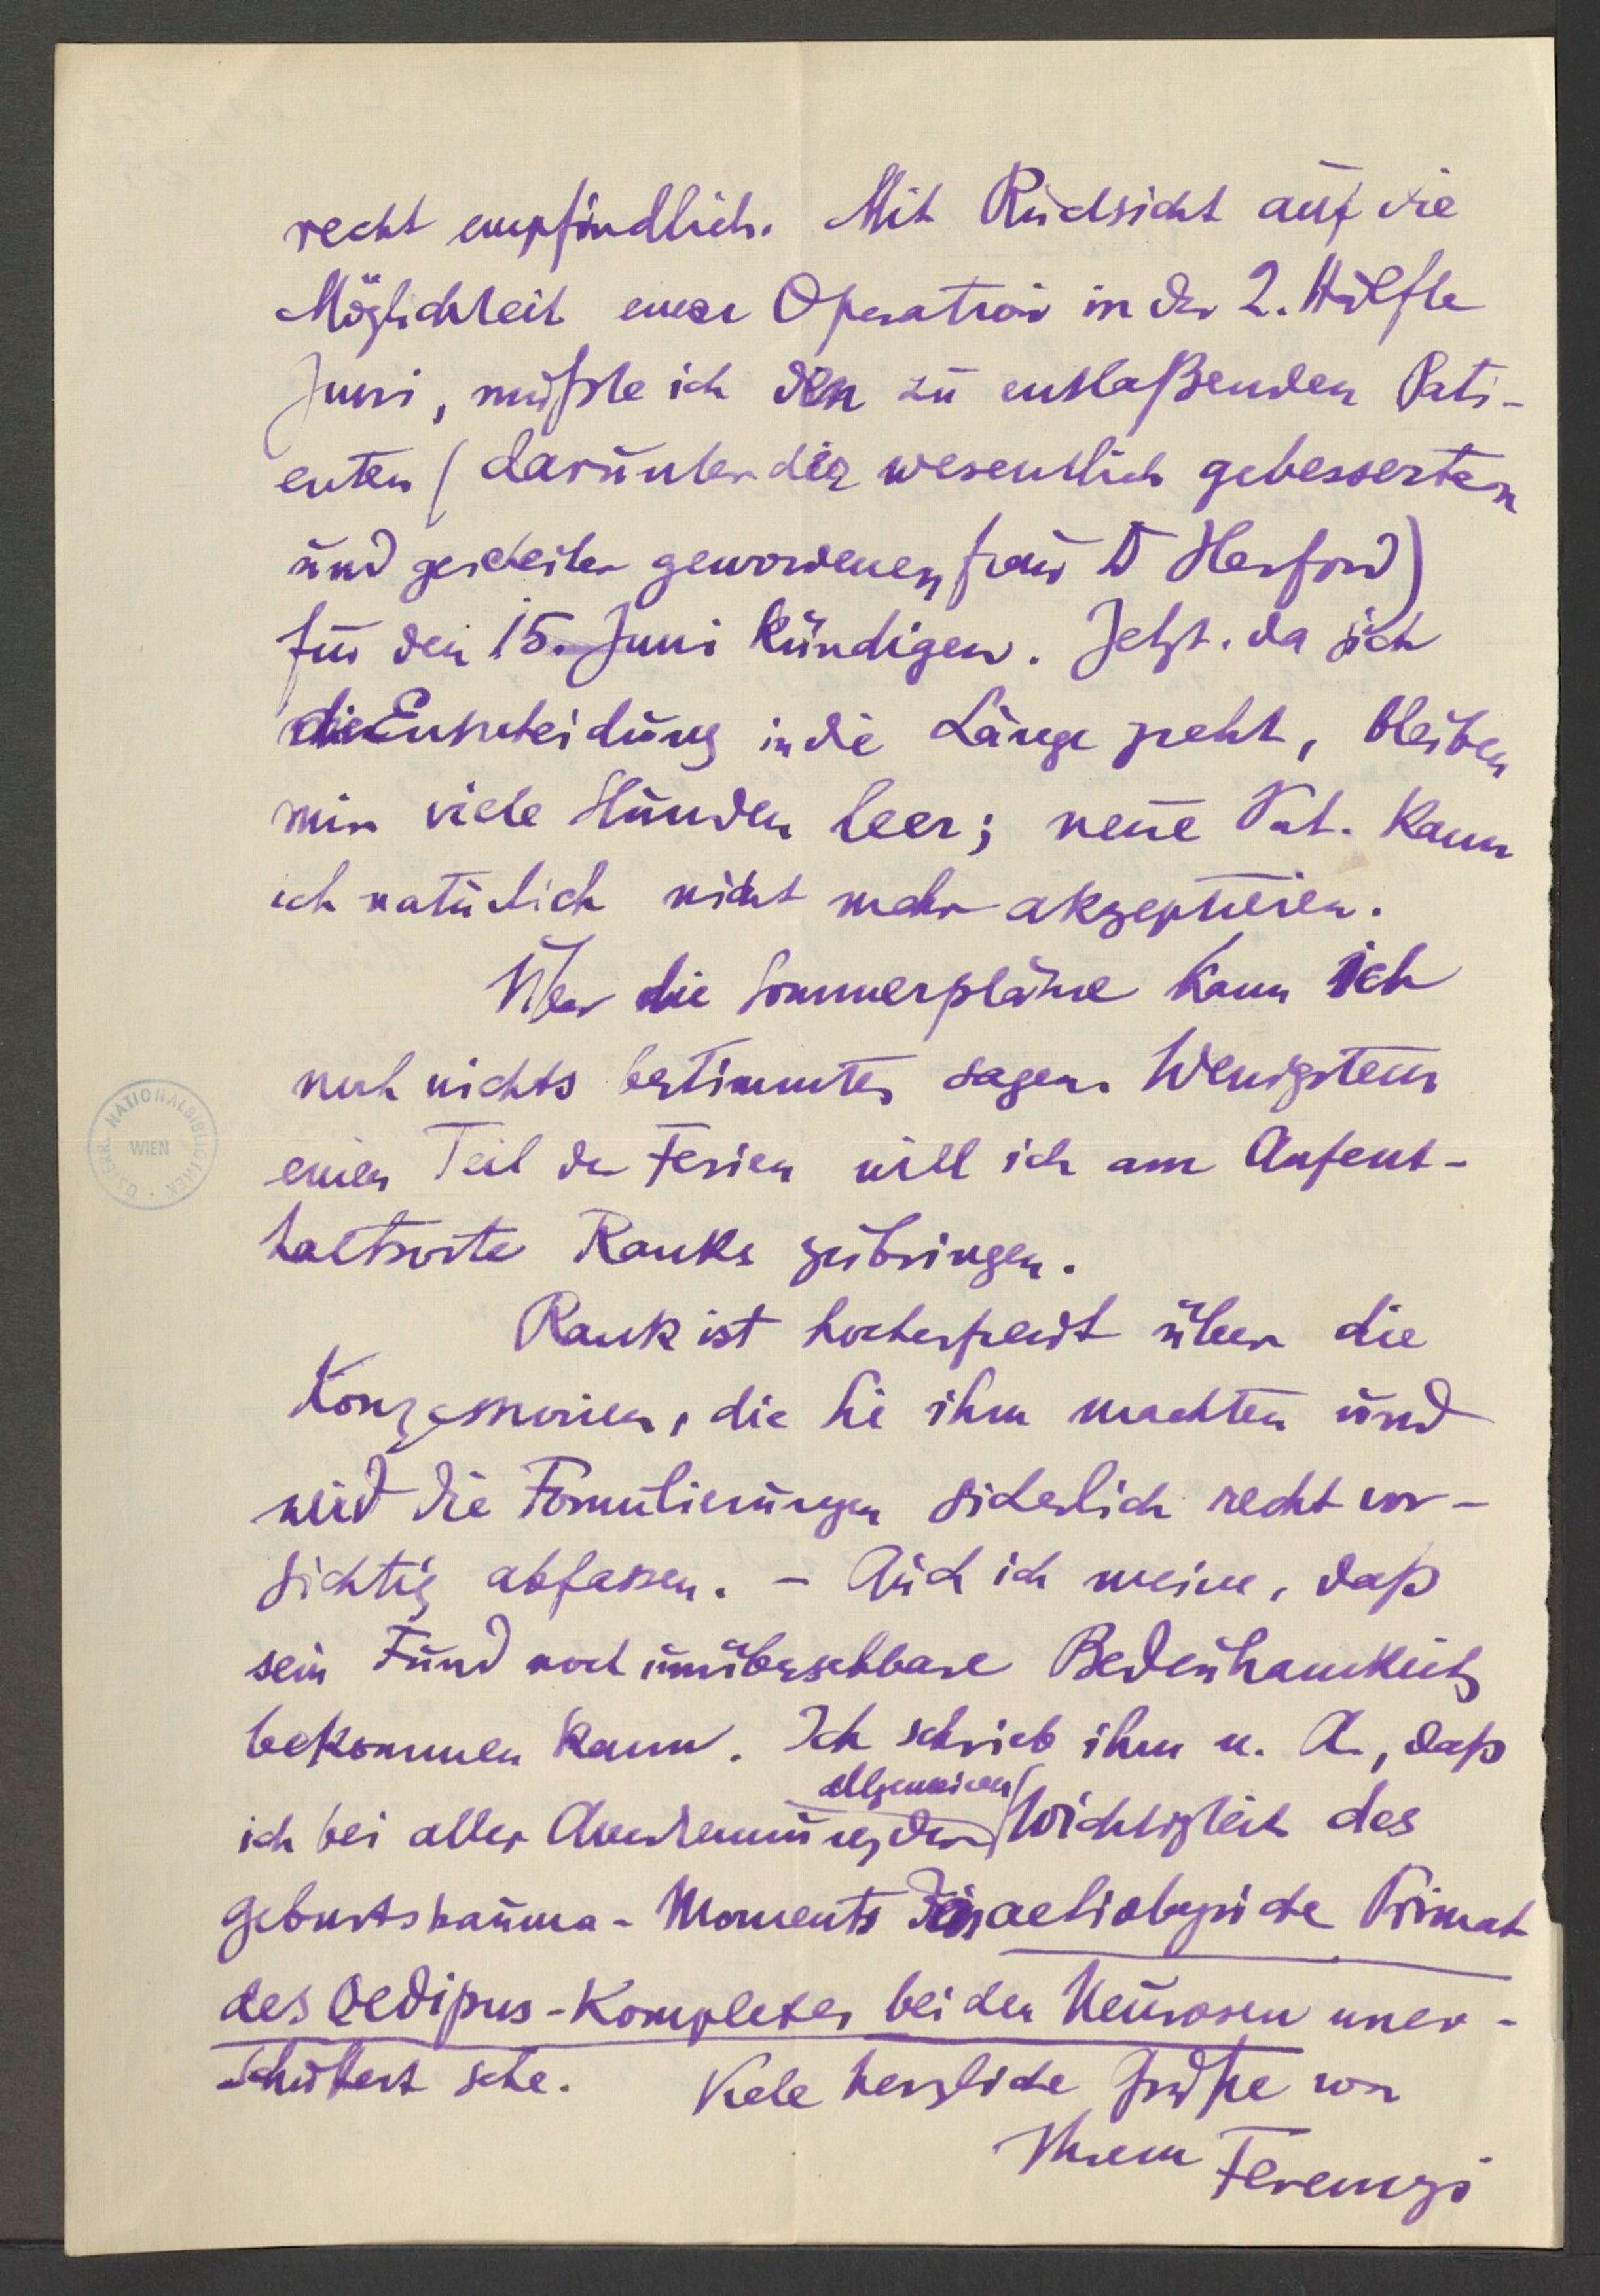 recht empfindlich. Mit Rücksicht auf die
Möglichkeit einer Operation in der 2. Hälfte
Juni, mußte ich den zu entlaßenden Pati-
enten (darunter der wesentlich gebesserten
und gescheiter gewordenen Frau Dr Herford)
für den 15. Juni kündigen. Jetzt, da sich
die Entscheidung in die Länge zieht, bleiben
mir viele Stunden leer; neue Pat. kann
ich natürlich nicht mehr akzeptieren.
Über die Sommerpläne kann ich
noch nichts bestimmtes sagen. Wenigstens
einen Teil der Ferien will ich am Aufent-
haltsorte Ranks zubringen.
Rank ist hocherfreut über die
Konzessionen, die Sie ihm machten und
wird die Formulierungen sicherlich recht vor-
sichtig abfassen. – Auch ich meine, daß
sein Fund noch unübersehbare Bedeutsamkeit
bekommen kann. Ich schrieb ihm u. A., daß
allgemeinen
ich bei aller Anerkennung der Wichtigkeit des
Geburtstrauma-Moments das aetiologische Primat
des Oedipus-Komplexes bei den Neurosen uner-
schüttert sehe. Viele herzliche Grüße von
Ihrem Ferenczi
ÖSTERR. NATIONALBIBLIOTHEK
WIEN